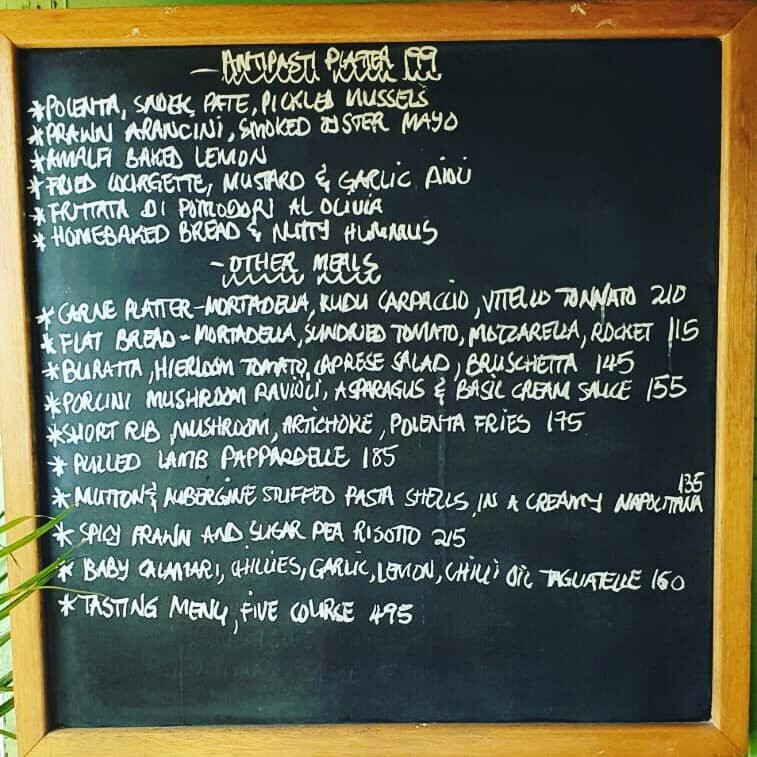 - ANTIPASTI PLATTER 99
*POLENTA, SNOEK PATE, PICKLED MUSSELS
*PRAWN ARANCINI, SMOKED OYSTER MAYO
*AMALFI BAKED LEMON
*FRIED COURGETTE, MUSTARD & GARLIC AIOLI
*FRITTATA DI POMODORI AL OLIVIA
*HOMEBAKED BREAD & NUTTY HUMMUS
- OTHER MEALS
*CARNE PLATTER - MORTADELLA, KUDU CARPACCIO, VITELLO TONNATO 210
*FLAT BREAD - MORTADELLA, SUNDRIED TOMATO, MOZZARELLA, ROCKET 115
*BURATTA, HIERLOOM TOMATO, CAPRESE SALAD, BRUSCHETTA 145
*PORCINI MUSHROOM RAVIOLI, ASPARAGUS & BASIL CREAM SAUCE 155
*SHORT RIB, MUSHROOM, ARTICHOKE, POLENTA FRIES 175
*PULLED LAMB PAPPARDELLE 185
*MUTTON & AUBERGINE STUFFED PASTA SHELLS, IN A CREAMY NAPOLITANA 135
*SPICY PRAWN AND SUGAR PEA RISOTTO 215
*BABY CALAMARI, CHILLIES, GARLIC, LEMON, CHILLI OIL TAGLIATELLE 160
*TASTING MENU, FIVE COURSE 495